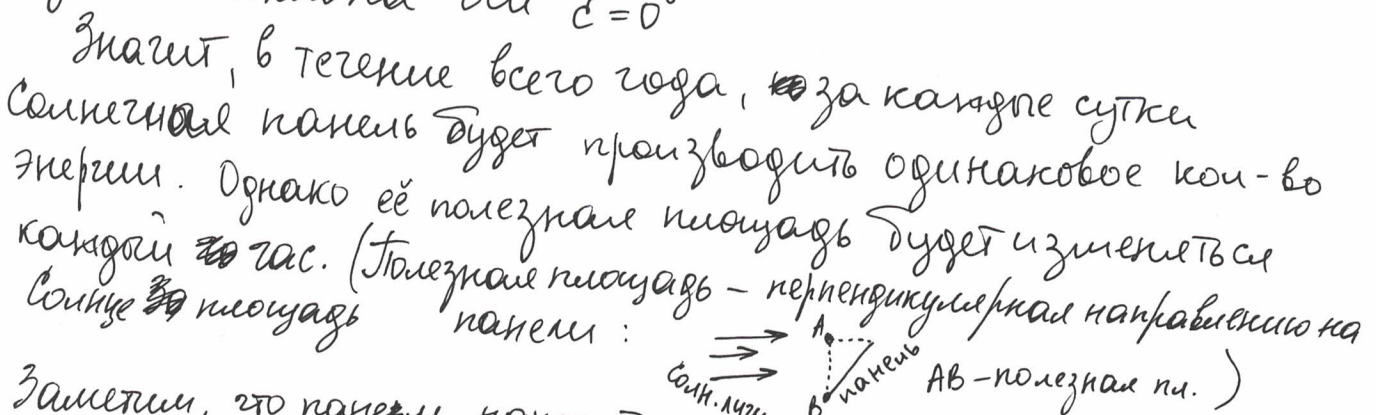 ε = 0°
Значит, в течение всего года, за каждые сутки
Солнечная панель будет производить одинаковое кол-во
энергии. Однако её полезная площадь будет изменяться
каждый час. (Полезная площадь – перпендикулярная направлению на
Солнце площадь панели:
A
B
Солн. лучи
панель
AB – полезная пл. )
Заметим, что